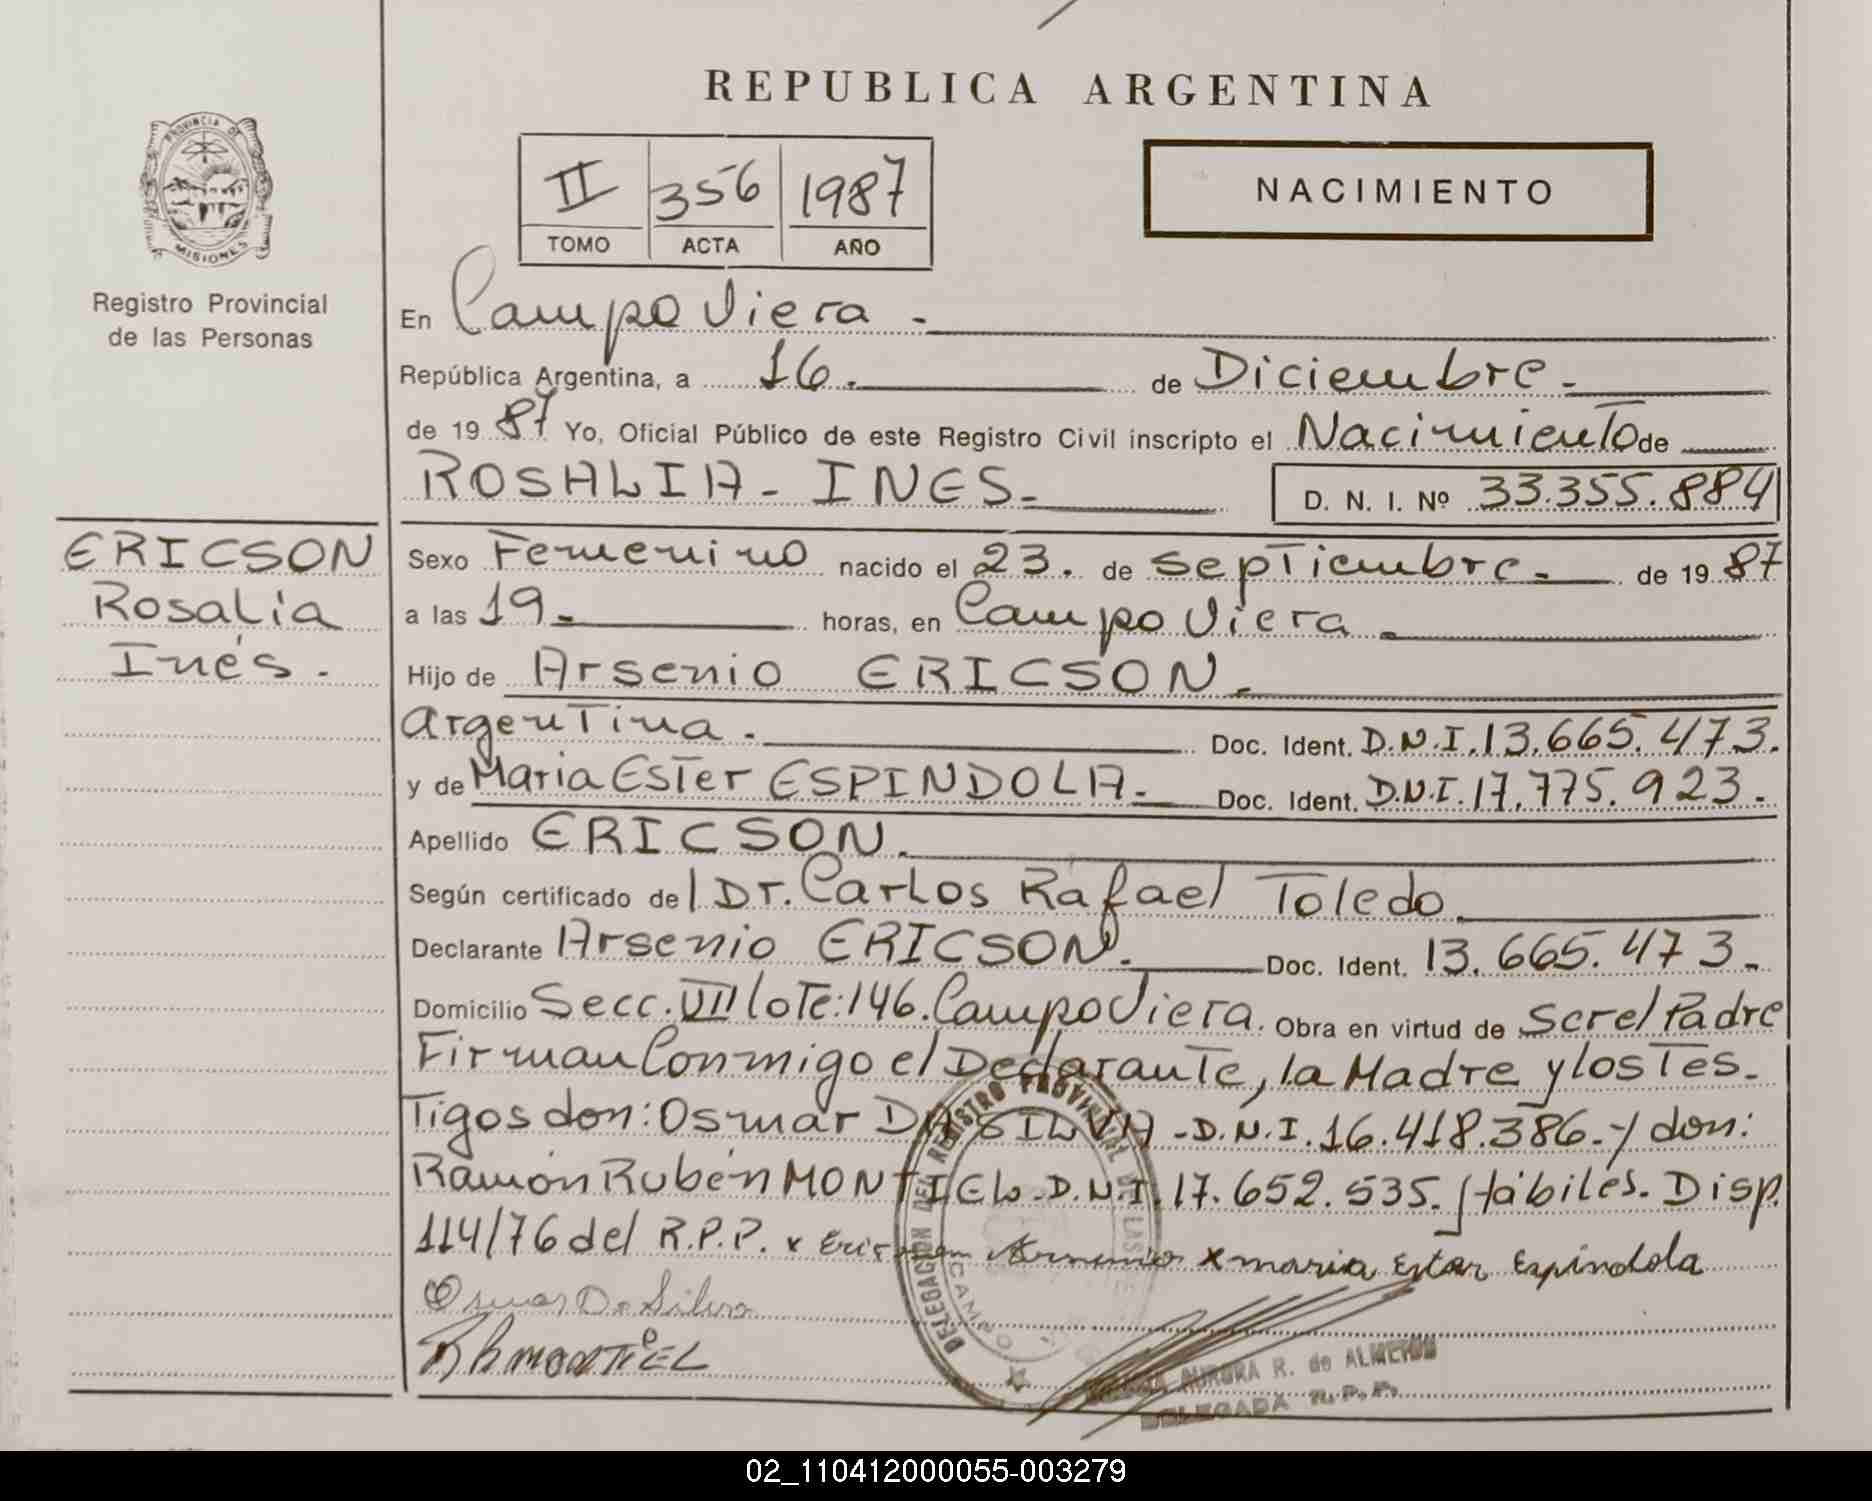 REPUBLICA ARGENTINA
PROVINCIA DE
MISIONES
Registro Provincial
de las Personas
II 356 1987
TOMO ACTA AÑO
NACIMIENTO
En Campo Viera.
República Argentina, a 16. de Diciembre.
de 1987 Yo, Oficial Público de este Registro Civil inscripto el Nacimiento de
ROSALIA - INES. D. N. I. Nº 33.355.884
ERICSON
Rosalía
Inés.
Sexo Femenino nacido el 23. de Septiembre. de 1987
a las 19. horas, en Campo Viera.
Hijo de Arsenio ERICSON.
Argentina. Doc. Ident. D.N.I. 13.665.473.
y de Maria Ester ESPINDOLA. Doc. Ident. D.N.I. 17.775.923.
Apellido ERICSON.
Según certificado del Dr. Carlos Rafael Toledo.
Declarante Arsenio ERICSON. Doc. Ident. 13.665.473.
Domicilio Secc. VII lote: 146. Campo Viera. Obra en virtud de Ser el Padre
Firman Conmigo el Declarante, la Madre y los Tes-
Tigos don: Osmar DA SILVA - D.N.I. 16.418.386. - y don:
Ramón Rubén MONTIEL - D.N.I. 17.652.535. Hábiles. Disp.
114/76 del R.P.P. x Ericson Arsenio x maria Ester Espindola
Osmar Da Silva
MONTIEL
DELEGACION DEL REGISTRO PROVINCIAL DE LAS
CAMPO
AURORA R. de ALMEIDA
DELEGADA R.P.P.
02_110412000055-003279